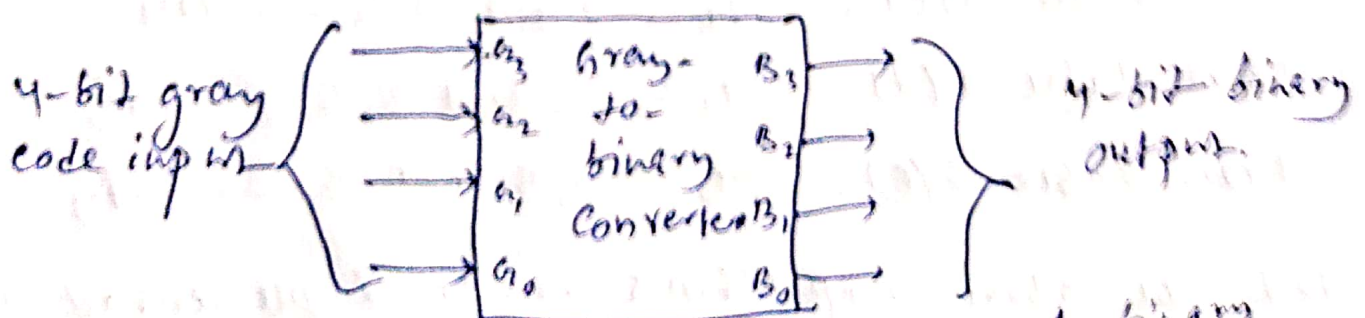 4-bit gray
code input
G3
G2
G1
G0
Gray-
to-
binary
Converter
B3
B2
B1
B0
4-bit binary
output.
binary